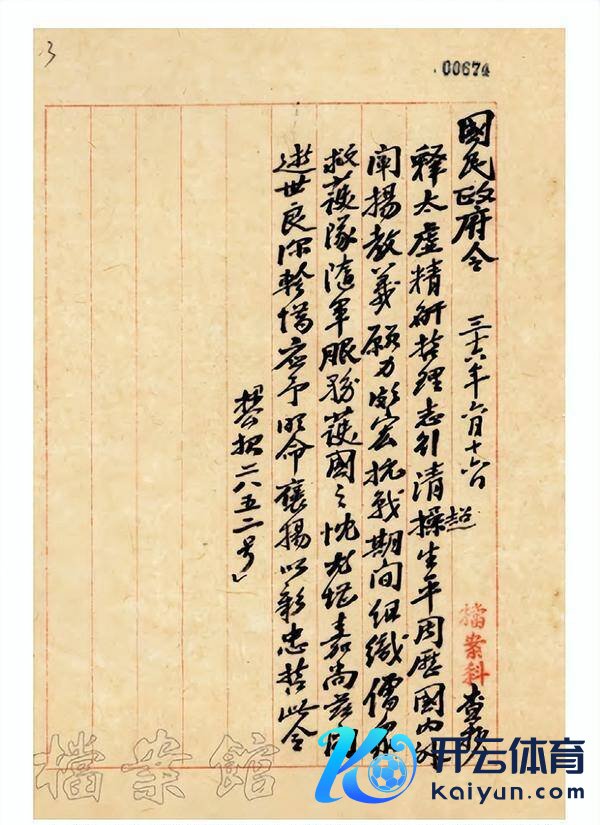 3
00674
國民政府令 三十六年六月十六日
釋太虛精研哲理志行清操生平周歷國內外
闡揚教義願力頗宏抗戰期間組織僧眾
救護隊隨軍服務護國之忱尤堪嘉尚茲聞
逝世良深軫惜應予明命褒揚以彰忠哲此令
報二八五二号」
檔案科
檔案館
开云体育
kaiyun.com